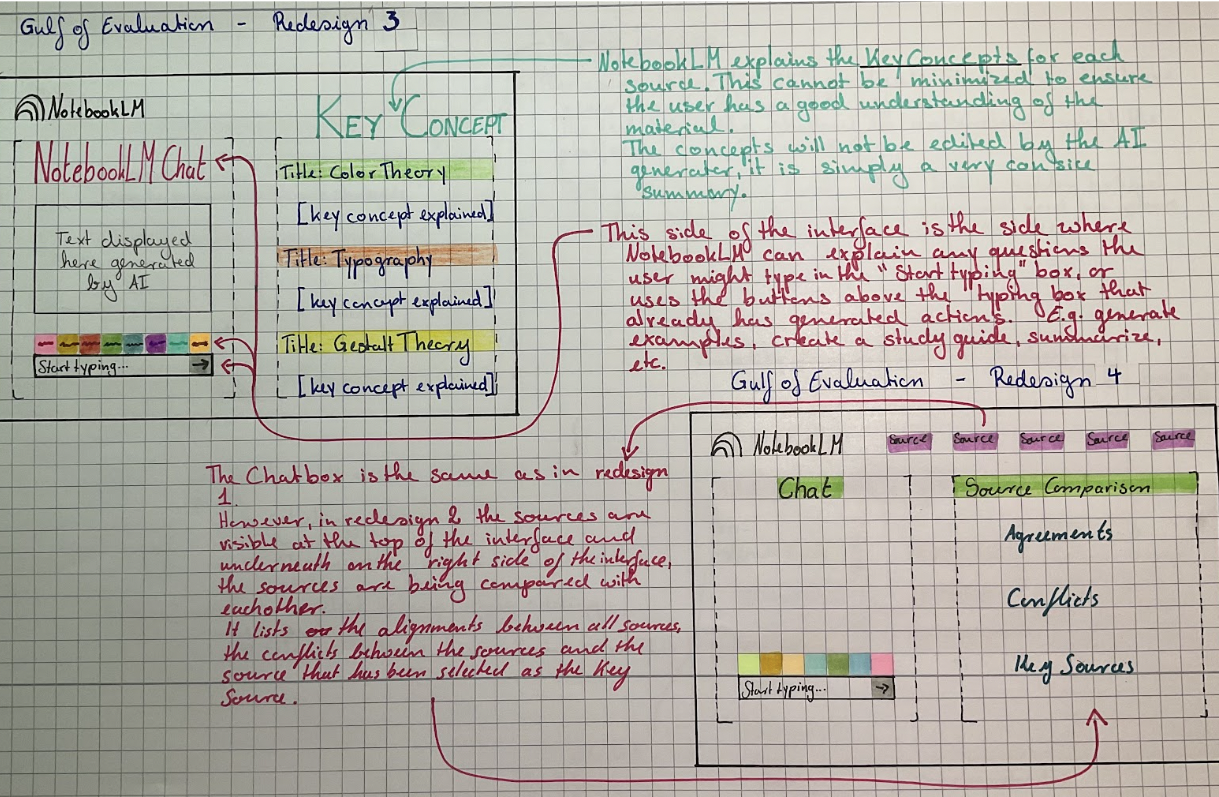 Gulf of Evaluation - Redesign 3
NotebookLM
NotebookLM Chat
Text displayed
here generated
by AI
Start typing...
KEY CONCEPT
Title: Color Theory
[key concept explained]
Title: Typography
[key concept explained]
Title: Gestalt Theory
[key concept explained]
NotebookLM explains the Key Concepts for each
source. This cannot be minimized to ensure
the user has a good understanding of the
material.
The concepts will not be edited by the AI
generater, it is simply a very consice
summary.
This side of the interface is the side where
NotebookLM can explain any questions the
user might type in the "Start typing" box, or
uses the buttons above the typing box that
already has generated actions. E.g. generate
examples, create a study guide, summarize,
etc.
Gulf of Evaluation - Redesign 4
The Chatbox is the same as in redesign
1.
However, in redesign 2 the sources are
visible at the top of the interface and
underneath on the right side of the interface,
the sources are being compared with
eachother.
It lists the alignments between all sources,
the conflicts between the sources and the
source that has been selected as the Key
Source.
NotebookLM
Source Source Source Source Source
Chat
Start typing...
Source Comparison
Agreements
Conflicts
Key Sources